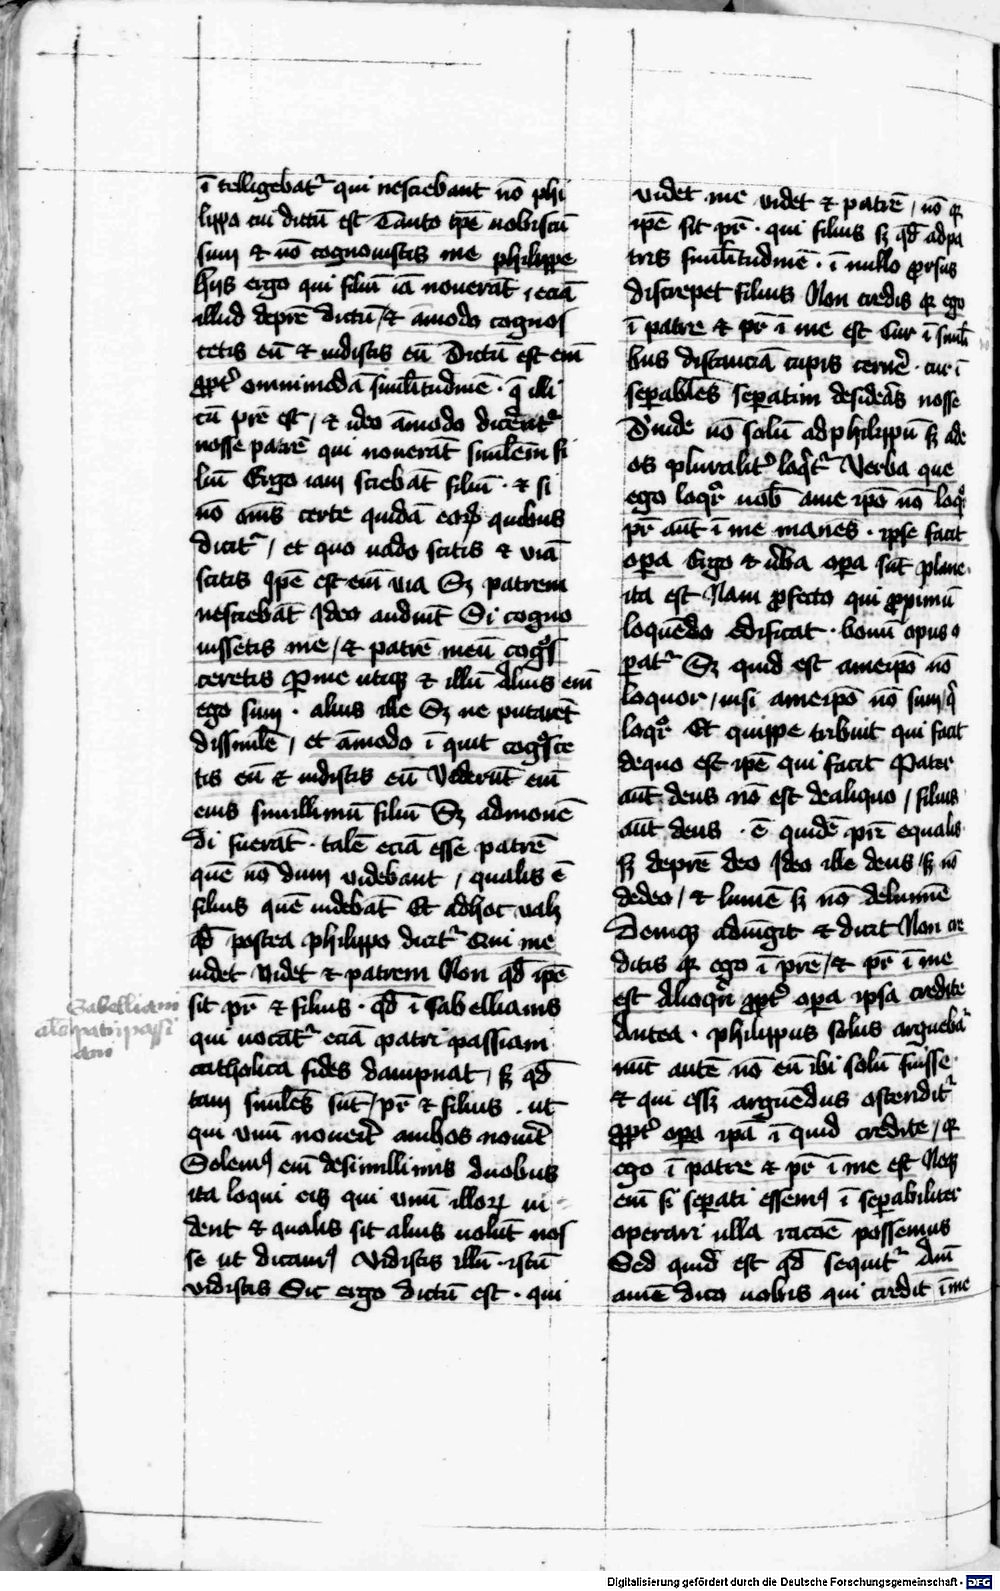 ī telligebat᷑ qui nesciebant nō phi
lippo cui dictū est Tanto tp̄e nobiscū
sum et nō cognouistis me philippe
hijs ergo qui filiū iā nouerāt / eciā
illud de pr̄e dictū / et āmodo cognos
cetis eū et uidistis eū Dictū est em̄
ꝓpt᷑ omnimodā simil̄itudinē · q̄ illi
cū pr̄e est / et ideo āmodo dicerent᷑
nosse patrē qui nouerāt simil̄em fi
liū Ergo iam sciebāt filiū · et si
nō om̄s certe quidā eoꝝ quibus
dicit᷑ / et quo uado scitis et uiā
scitis Ip̄e est em̄ uia Sꝫ patrem
nesciebāt Ideo audiūt Si cogno
uissetis me / et patrē meū cog̊s
ceretis Per me utiqꝫ et illū Alius em̄
ego sum · alius ille Sꝫ ne putarēt
dissimilē / et āmodo īquit cog̊sce
tis eū et uidistis eū Viderūt em̄
eius simillimū filiū Sꝫ admonē
di fuerāt · talē eciā esse patrē
quē nō dum uidebant / qualis ē
filius quē uidebāt Et ad hoc ualꝫ
qd̄ postea philippo dicit᷑ Qui me
uidet Videt et patrem Non qd̄ ip̄e
sit pr̄ et filius · qd̄ ī sabellianis
qui uocāt᷑ eciā patri passiani
catholica fides dampnat / sꝫ qd̄
tam simil̄es sūt / pr̄ et filius · ut
qui unū nouerit ambos nouerit
Solemꝰ em̄ de simillimis duobus
ita loqui eis qui unū illoꝝ ui
dent et qualis sit alius uolūt nos
se ut dicamꝰ Vidistis illū · istū
vidistis Sic ergo dictū est · qui
Sabelliani
al̄s patripassi
ani
videt me videt et patrē / nō qꝫ
ip̄e sit pr̄ · qui filius sꝫ qd̄ a pa
tris simil̄itudinē · ī nullo ꝓrsus
discrepet filius Non credis qꝫ ego
ī patre et pr̄ ī me est Cur ī simil̄i
bus distanciā cupis cerner̄ · cur ī
sepabil̄es sepatim desideras nosse
Deinde nō solū ad philippū sꝫ ad e
os pluralit᷑ loq̄t᷑ Verba que
ego loqr̄ uob̄ a me ip̄o nō loqr̄
pr̄ aūt ī me manēs · ipse facit
opa Ergo et u̅ba opa sūt plane
ita est Nam ꝓfecto qui ꝓximū
loquēdo edificat · bonū opus o
pat᷑ Sꝫ quid est a me ip̄o nō
loquor / nisi a me ip̄o nō sum / q̄
loqr̄ Ei quippe tribuit qui facit
de quo est ip̄e qui facit Pater
aūt deus nō est de aliquo / filius
aūt deus · ē quidē pr̄i equalis
sꝫ de pr̄e deo Ideo ille deus / sꝫ nō
de deo / et lumē sꝫ nō de lumīe
Deniqꝫ adiūgit et dicit Non cre
ditis qꝫ ego ī pr̄e / et pr̄ ī me
est Alioqn̄ ꝓpt᷑ opa ipsa credite
Antea · philippus solus arguebat᷑
nūc autē nō eū ibi solū fuisse
et qui essꝫ arguēdus ostendit᷑
ꝓpt᷑ opa ip̄a īquid credite / qꝫ
ego ī patre et pr̄ ī me est Neqꝫ
em̄ si sepati essemꝰ ī sepabiliter
operari ulla racōe possemus
Sed quid est qd̄ sequit᷑ Amē
amē dico uobis qui credit ī me
Digitalisierung gefördert durch die Deutsche Forschungsgemeinschaft - DFG